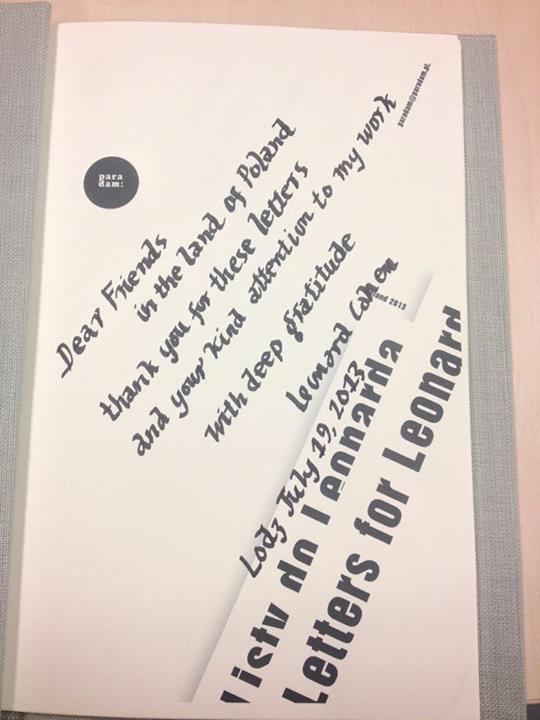 para
dam:
paradam@paradam.pl
Dear Friends
in the land of Poland
thank you for these letters
and your kind attention to my work
With deep gratitude
Leonard Cohen
Lodz July 19, 2013
land 2013
Listy do Leonarda
Letters for Leonard